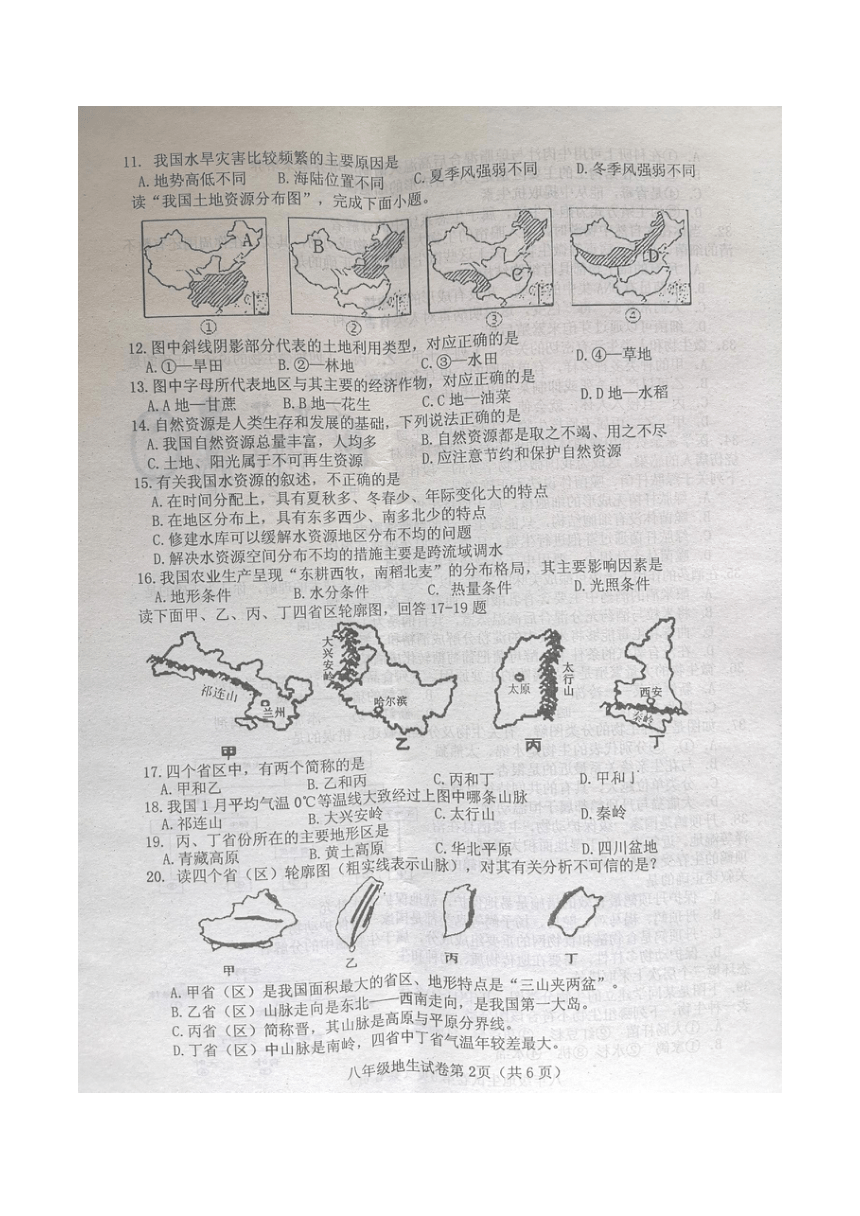 11. 我国水旱灾害比较频繁的主要原因是
A.地势高低不同 B.海陆位置不同 C.夏季风强弱不同 D.冬季风强弱不同
读“我国土地资源分布图”，完成下面小题。
A B C D
① ② ③ ④
12.图中斜线阴影部分代表的土地利用类型，对应正确的是
A.①—旱田 B.②—林地 C.③—水田 D.④—草地
13.图中字母所代表地区与其主要的经济作物，对应正确的是
A.A地—甘蔗 B.B地—花生 C.C地—油菜 D.D地—水稻
14.自然资源是人类生存和发展的基础，下列说法正确的是
A.我国自然资源总量丰富，人均多 B.自然资源都是取之不竭、用之不尽
C.土地、阳光属于不可再生资源 D.应注意节约和保护自然资源
15.有关我国水资源的叙述，不正确的是
A.在时间分配上，具有夏秋多、冬春少、年际变化大的特点
B.在地区分布上，具有东多西少、南多北少的特点
C.修建水库可以缓解水资源地区分布不均的问题
D.解决水资源空间分布不均的措施主要是跨流域调水
16.我国农业生产呈现“东耕西牧，南稻北麦”的分布格局，其主要影响因素是
A.地形条件 B.水分条件 C. 热量条件 D.光照条件
读下面甲、乙、丙、丁四省区轮廓图，回答17-19题
祁连山 兰州 大兴安岭 哈尔滨 太原 太行山 西安 秦岭
甲 乙 丙 丁
17.四个省区中，有两个简称的是
A.甲和乙 B.乙和丙 C.丙和丁 D.甲和丁
18.我国1月平均气温0℃等温线大致经过上图中哪条山脉
A.祁连山 B.大兴安岭 C.太行山 D.秦岭
19. 丙、丁省份所在的主要地形区是
A.青藏高原 B.黄土高原 C.华北平原 D.四川盆地
20. 读四个省（区）轮廓图（粗实线表示山脉），对其有关分析不可信的是？
甲 乙 丙 丁
A.甲省（区）是我国面积最大的省区、地形特点是“三山夹两盆”。
B.乙省（区）山脉走向是东北——西南走向，是我国第一大岛。
C.丙省（区）简称晋，其山脉是高原与平原分界线。
D.丁省（区）中山脉是南岭，四省中丁省气温年较差最大。
八年级地生试卷第2页（共6页）